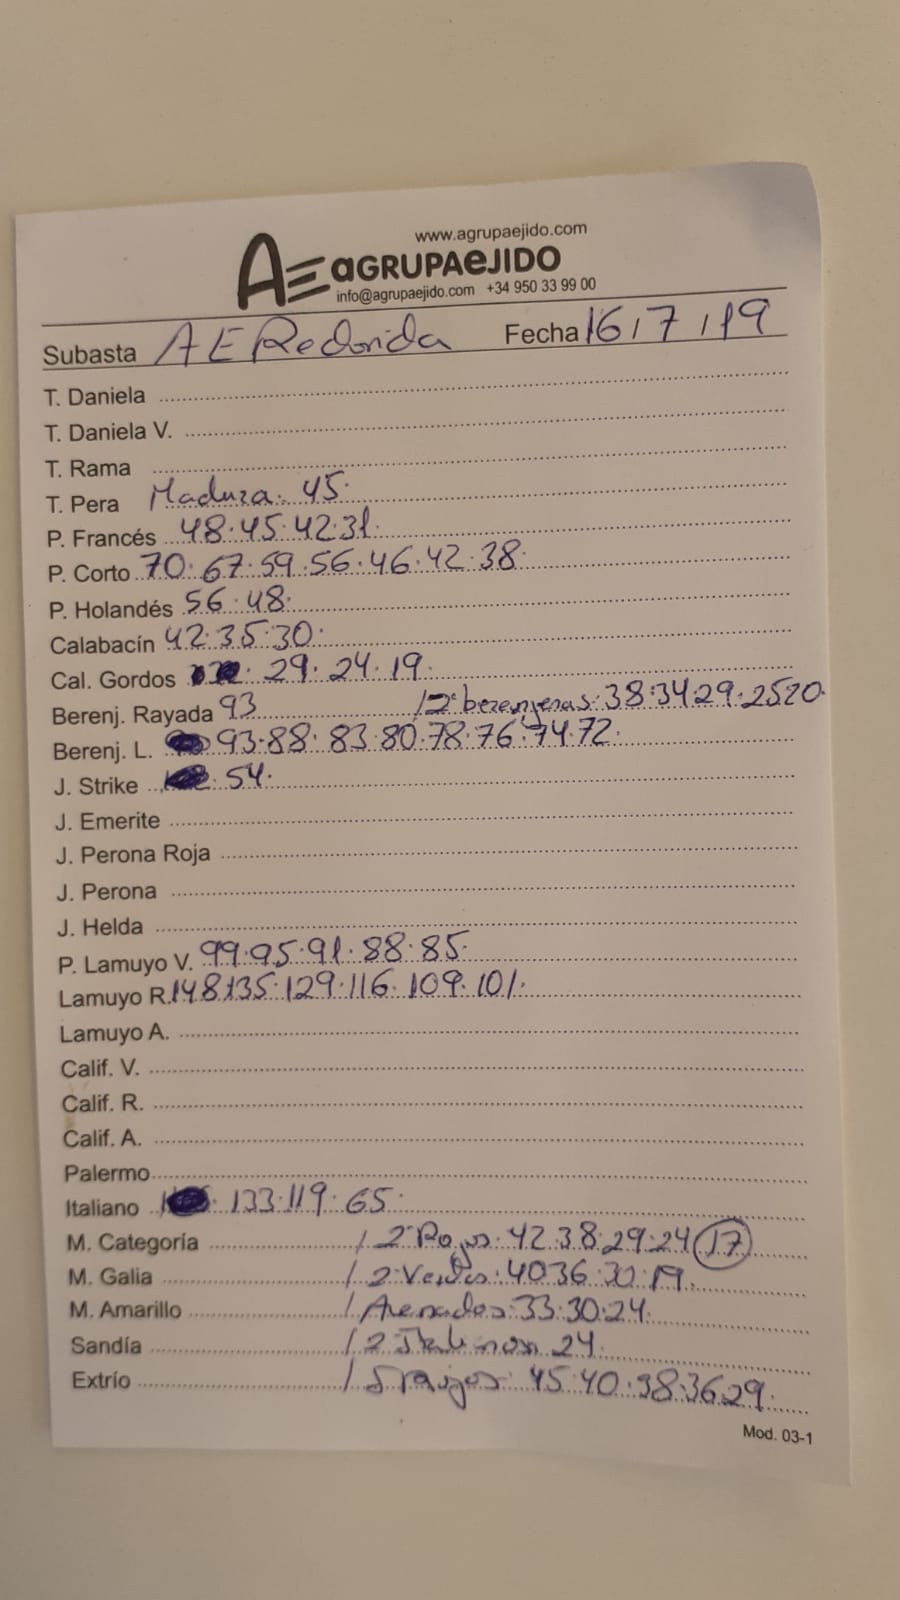 www.agrupaejido.com
AE aGRUPAeJIDO
info@agrupaejido.com +34 950 33 99 00
Subasta AE Redonda Fecha 16/7/19
T. Daniela
T. Daniela V.
T. Rama
T. Pera Madura. 45.
P. Francés 48.45.42.31.
P. Corto 70.67.59.56.46.42.38
P. Holandés 56.48.
Calabacín 42.35.30.
Cal. Gordos 29.24.19.
Berenj. Rayada 93 /2ª berenjenas.38.34.29.25 20.
Berenj. L. 93.88.83.80.78.76.74.72.
J. Strike 54.
J. Emerite
J. Perona Roja
J. Perona
J. Helda
P. Lamuyo V. 99.95.91.88.85.
Lamuyo R. 148.135.129.116.109.101.
Lamuyo A.
Calif. V.
Calif. R.
Calif. A.
Palermo
Italiano 133.119.65.
M. Categoría / 2ª Rojos.42.38.29.24 17
M. Galia / 2ª Verdes.40 36.30.19.
M. Amarillo / Asenados.33.30.24.
Sandía / 2ª Italianos 24.
Extrío / 45.40.38.36 29.
Mod. 03-1